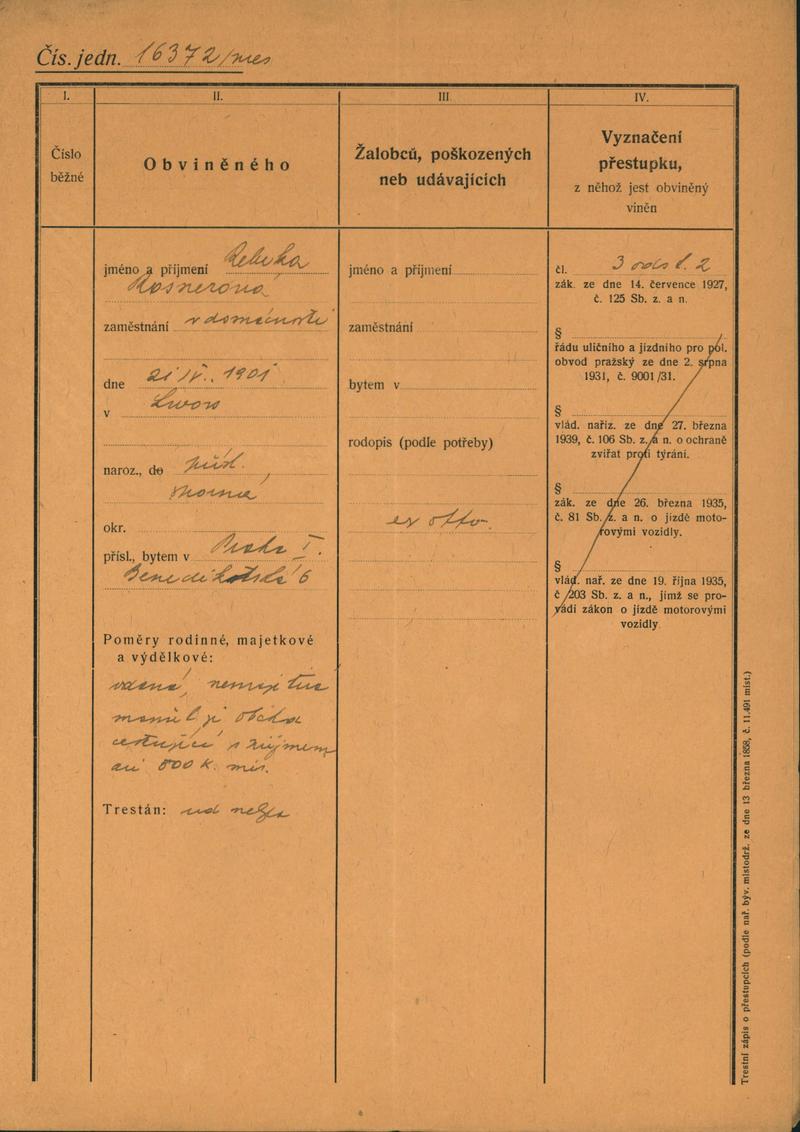 Čís. jedn. 16372/mes
I.
II.
III.
IV.
Číslo
běžné
Obviněného
Žalobců, poškozených
neb udávajících
Vyznačení
přestupku,
z něhož jest obviněný
viněn
jméno a příjmení Rebeka
Kosnerová
zaměstnání v domácnosti
dne 21/IV., 1901
v Lwow
naroz., do
okr.
přísl., bytem v Praha I.
Benediktská 6
Poměry rodinné, majetkové
a výdělkové:
vdaná, nemajetná
manžel je obch.
cestující s příjmem
asi 800 K. měs.
Trestán:
jméno a příjmení
zaměstnání
bytem v
rodopis (podle potřeby)
ex offo.
čl. 3 odst. 2
zák. ze dne 14. července 1927,
č. 125 Sb. z. a n.
§
řádu uličního a jízdního pro pol.
obvod pražský ze dne 2. srpna
1931, č. 9001/31.
§
vlád. naříz. ze dne 27. března
1939, č. 106 Sb. z. a n. o ochraně
zvířat proti týrání.
§
zák. ze dne 26. března 1935,
č. 81 Sb. z. a n. o jízdě moto-
rovými vozidly.
§
vlád. nař. ze dne 19. října 1935,
č 203 Sb. z. a n., jímž se pro-
vádí zákon o jízdě motorovými
vozidly.
Trestní zápis o přestupcích (podle nař. býv. místodrž. ze dne 13 března 1858, č. 11.491 míst.)